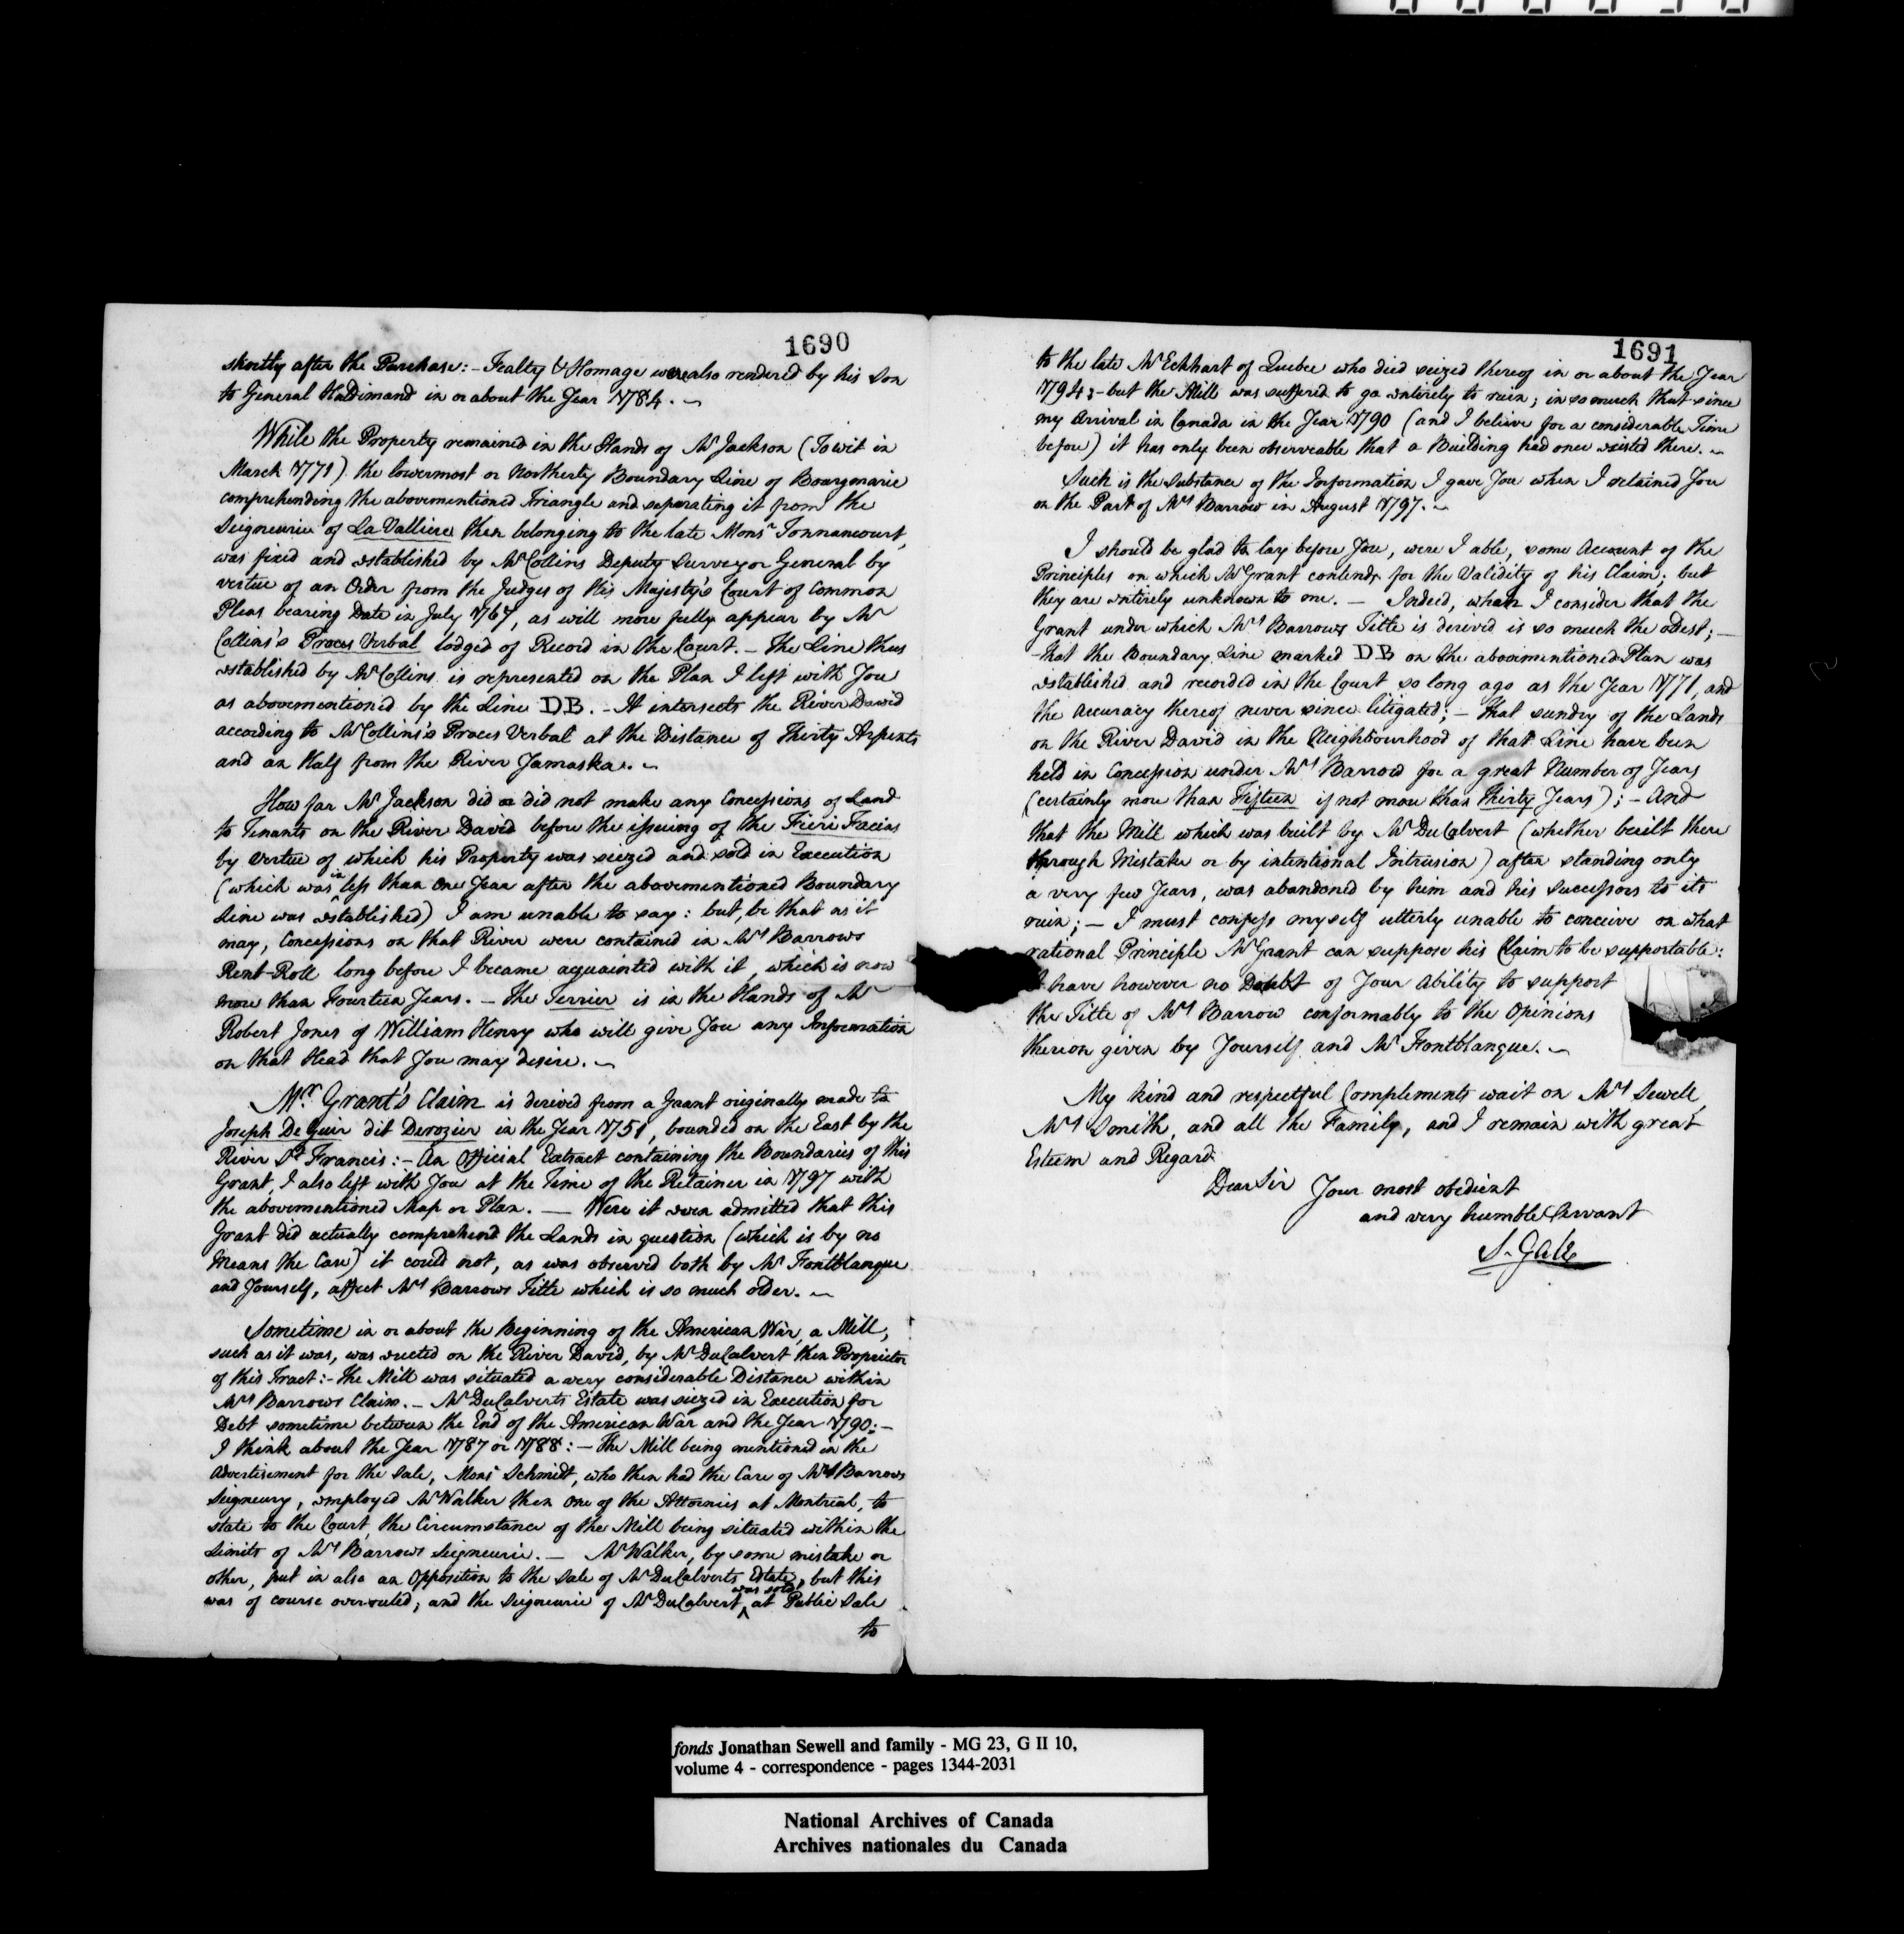 1690
shortly after the Purchase: – Fealty & Homage were also rendered by his Son
to General Haldimand in or about the Year 1784. –
While the Property remained in the Hands of Mr Jackson (To wit in
March 1771) the lowermost or Northerly Boundary Line of Bourgmarie
comprehending the abovementioned Triangle and separating it from the
Seigneurie of La Valliere then belonging to the late Monsr Tonnancourt,
was fixed and established by Mr Collins Deputy Surveyor General by
vertue of an Order from the Judges of His Majesty's Court of Common
Pleas bearing Date in July 1767, as will more fully appear by Mr
Collins's Proces Verbal lodged of Record in the Court. – The Line thus
established by Mr Collins is represented on the Plan I left with You
as abovementioned by the Line D.B. – It intersects the River David
according to Mr Collins's Proces Verbal at the Distance of Thirty Arpents
and an Half from the River Yamaska. –
How far Mr Jackson did or did not make any Concessions of Land
to Tenants on the River David before the issuing of the Fieri Facias
by vertue of which his Property was seized and sold in Execution
(which was in less than one Year after the abovementioned Boundary
Line was established) I am unable to say: but, be that as it
may, Concessions on that River were contained in Mrs Barrows
Rent-Roll long before I became acquainted with it, which is now
more than Fourteen Years. – The Terrier is in the Hands of Mr
Robert Jones of William Henry who will give You any Information
on that Head that You may desire. –
Mr. Grant's Claim is derived from a Grant originally made to
Joseph De Guir dit Derozier in the Year 1751, bounded on the East by the
River St Francis: – An Official Extract containing the Boundaries of this
Grant, I also left with You at the Time of the Retainer in 1797 with
the abovementioned Map or Plan. — Were it even admitted that this
Grant did actually comprehend the Lands in question (which is by no
Means the Case) it could not, as was observed both by Mr Fontblanque
and Yourself, affect Mrs Barrows Title which is so much older. –
Sometime in or about the Beginning of the American War, a Mill,
such as it was, was erected on the River David, by Mr DuCalvert then Proprietor
of this Tract: – The Mill was situated a very considerable Distance within
Mrs Barrows Claim. – Mr DuCalverts Estate was seized in Execution for
Debt sometime between the End of the American War and the Year 1790: –
I think about the Year 1787 or 1788: – The Mill being mentioned in the
Advertisement for the Sale, Monsr Schmidt, who then had the Care of Mrs Barrows
Seigneury, employed Mr Walker then one of the Attornies at Montreal, to
state to the Court, the Circumstance of the Mill being situated within the
Limits of Mrs Barrows Seigneurie. — Mr Walker, by some mistake or
other, put in also an Opposition to the Sale of Mr DuCalverts Estate, but this
was of course overruled; and the Seigneurie of Mr DuCalvert was sold at Public Sale
to
1691
to the late Mr Eckhart of Quebec who died seized thereof in or about the Year
1794; – but the Mill was suffered to go entirely to ruin; in so much that since
my Arrival in Canada in the Year 1790 (and I believe for a considerable Time
before) it has only been observeable that a Building had once existed there. –
Such is the Substance of the Information I gave You when I retained You
on the Part of Mrs Barrow in August 1797. –
I should be glad to lay before You, were I able, some Account of the
Principles on which Mr Grant contends for the Validity of his Claim; but
they are entirely unknown to me. — Indeed, when I consider that the
Grant under which Mrs Barrows Title is derived is so much the oldest; —
– that the Boundary Line marked D B on the abovementioned Plan was
established and recorded in the Court so long ago as the Year 1771, and
the Accuracy thereof never since litigated; – that sundry of the Lands
on the River David in the Neighbourhood of that Line have been
held in Concession under Mrs Barrow for a great Number of Years
(certainly more than Fifteen if not more than thirty Years); – And
that the Mill which was built by Mr DuCalvert (whether built there
through Mistake or by intentional Intrusion) after standing only
a very few Years, was abandoned by him and his Successors to its
ruin; – I must confess myself utterly unable to conceive on what
rational Principle Mr Grant can suppose his Claim to be supportable:
I have however no Doubt of Your Ability to support
the Title of Mrs Barrow conformably to the Opinions
thereon given by Yourself and Mr Fontblanque. –
My kind and respectful Complements wait on Mrs Sewell,
Mrs Smith, and all the Family, and I remain with great
Esteem and Regard
Dear Sir Your most obedient
and very humble Servant
S. Gale
fonds Jonathan Sewell and family - MG 23, G II 10,
volume 4 - correspondence - pages 1344-2031
National Archives of Canada
Archives nationales du Canada